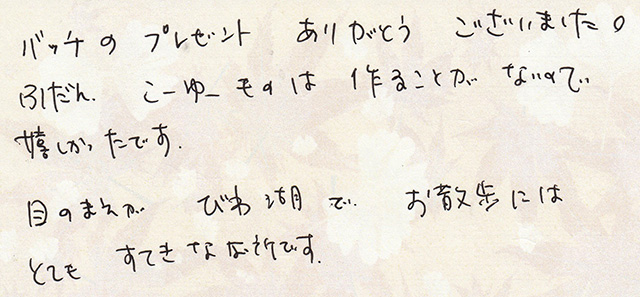 バッチの プレゼント ありがとう ございました。
ふだん、こーゆーものは 作ることが ないので
嬉しかったです。
目のまえが びわ湖で お散歩には
とても すてきな な所です。